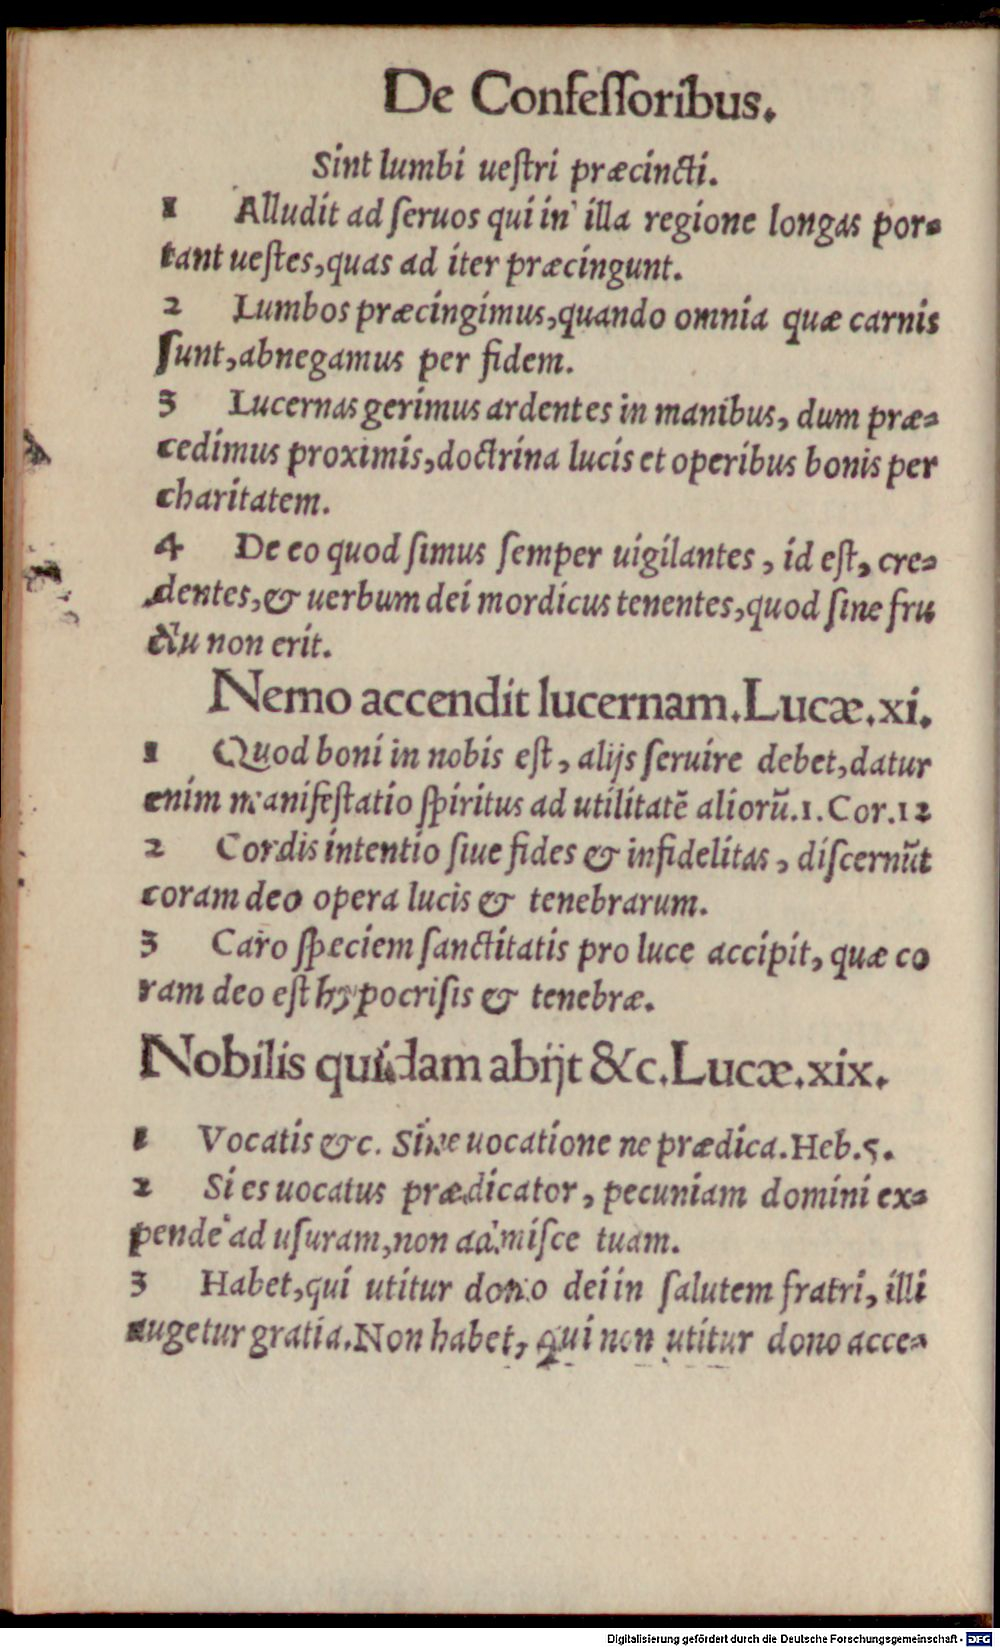 De Confeſſoribus.
Sint lumbi ueſtri præcincti.
1 Alludit ad ſeruos qui in illa regione longas por-
tant ueſtes, quas ad iter præcingunt.
2 Lumbos præcingimus, quando omnia quæ carnis
ſunt, abnegamus per fidem.
3 Lucernas gerimus ardentes in manibus, dum præ-
cedimus proximis, doctrina lucis et operibus bonis per
charitatem.
4 De eo quod ſimus ſemper uigilantes, id eſt, cre-
dentes, & uerbum dei mordicus tenentes, quod ſine fru
ctu non erit.
Nemo accendit lucernam. Lucæ. xi.
1 Quod boni in nobis eſt, alijs ſeruire debet, datur
enim manifeſtatio ſpiritus ad utilitatē aliorū. 1. Cor. 12
2 Cordis intentio ſiue fides & infidelitas, diſcernūt
coram deo opera lucis & tenebrarum.
3 Caro ſpeciem ſanctitatis pro luce accipit, quæ co
ram deo eſt hypocriſis & tenebræ.
Nobilis quidam abijt &c. Lucæ. xix.
1 Vocatis &c. Sine uocatione ne prædica. Heb. 5.
2 Si es uocatus prædicator, pecuniam domini ex-
pende ad uſuram, non admiſce tuam.
3 Habet, qui utitur dono dei in ſalutem fratri, illi
augetur gratia. Non habet, qui non utitur dono acce-
Digitalisierung gefördert durch die Deutsche Forschungsgemeinschaft - DFG